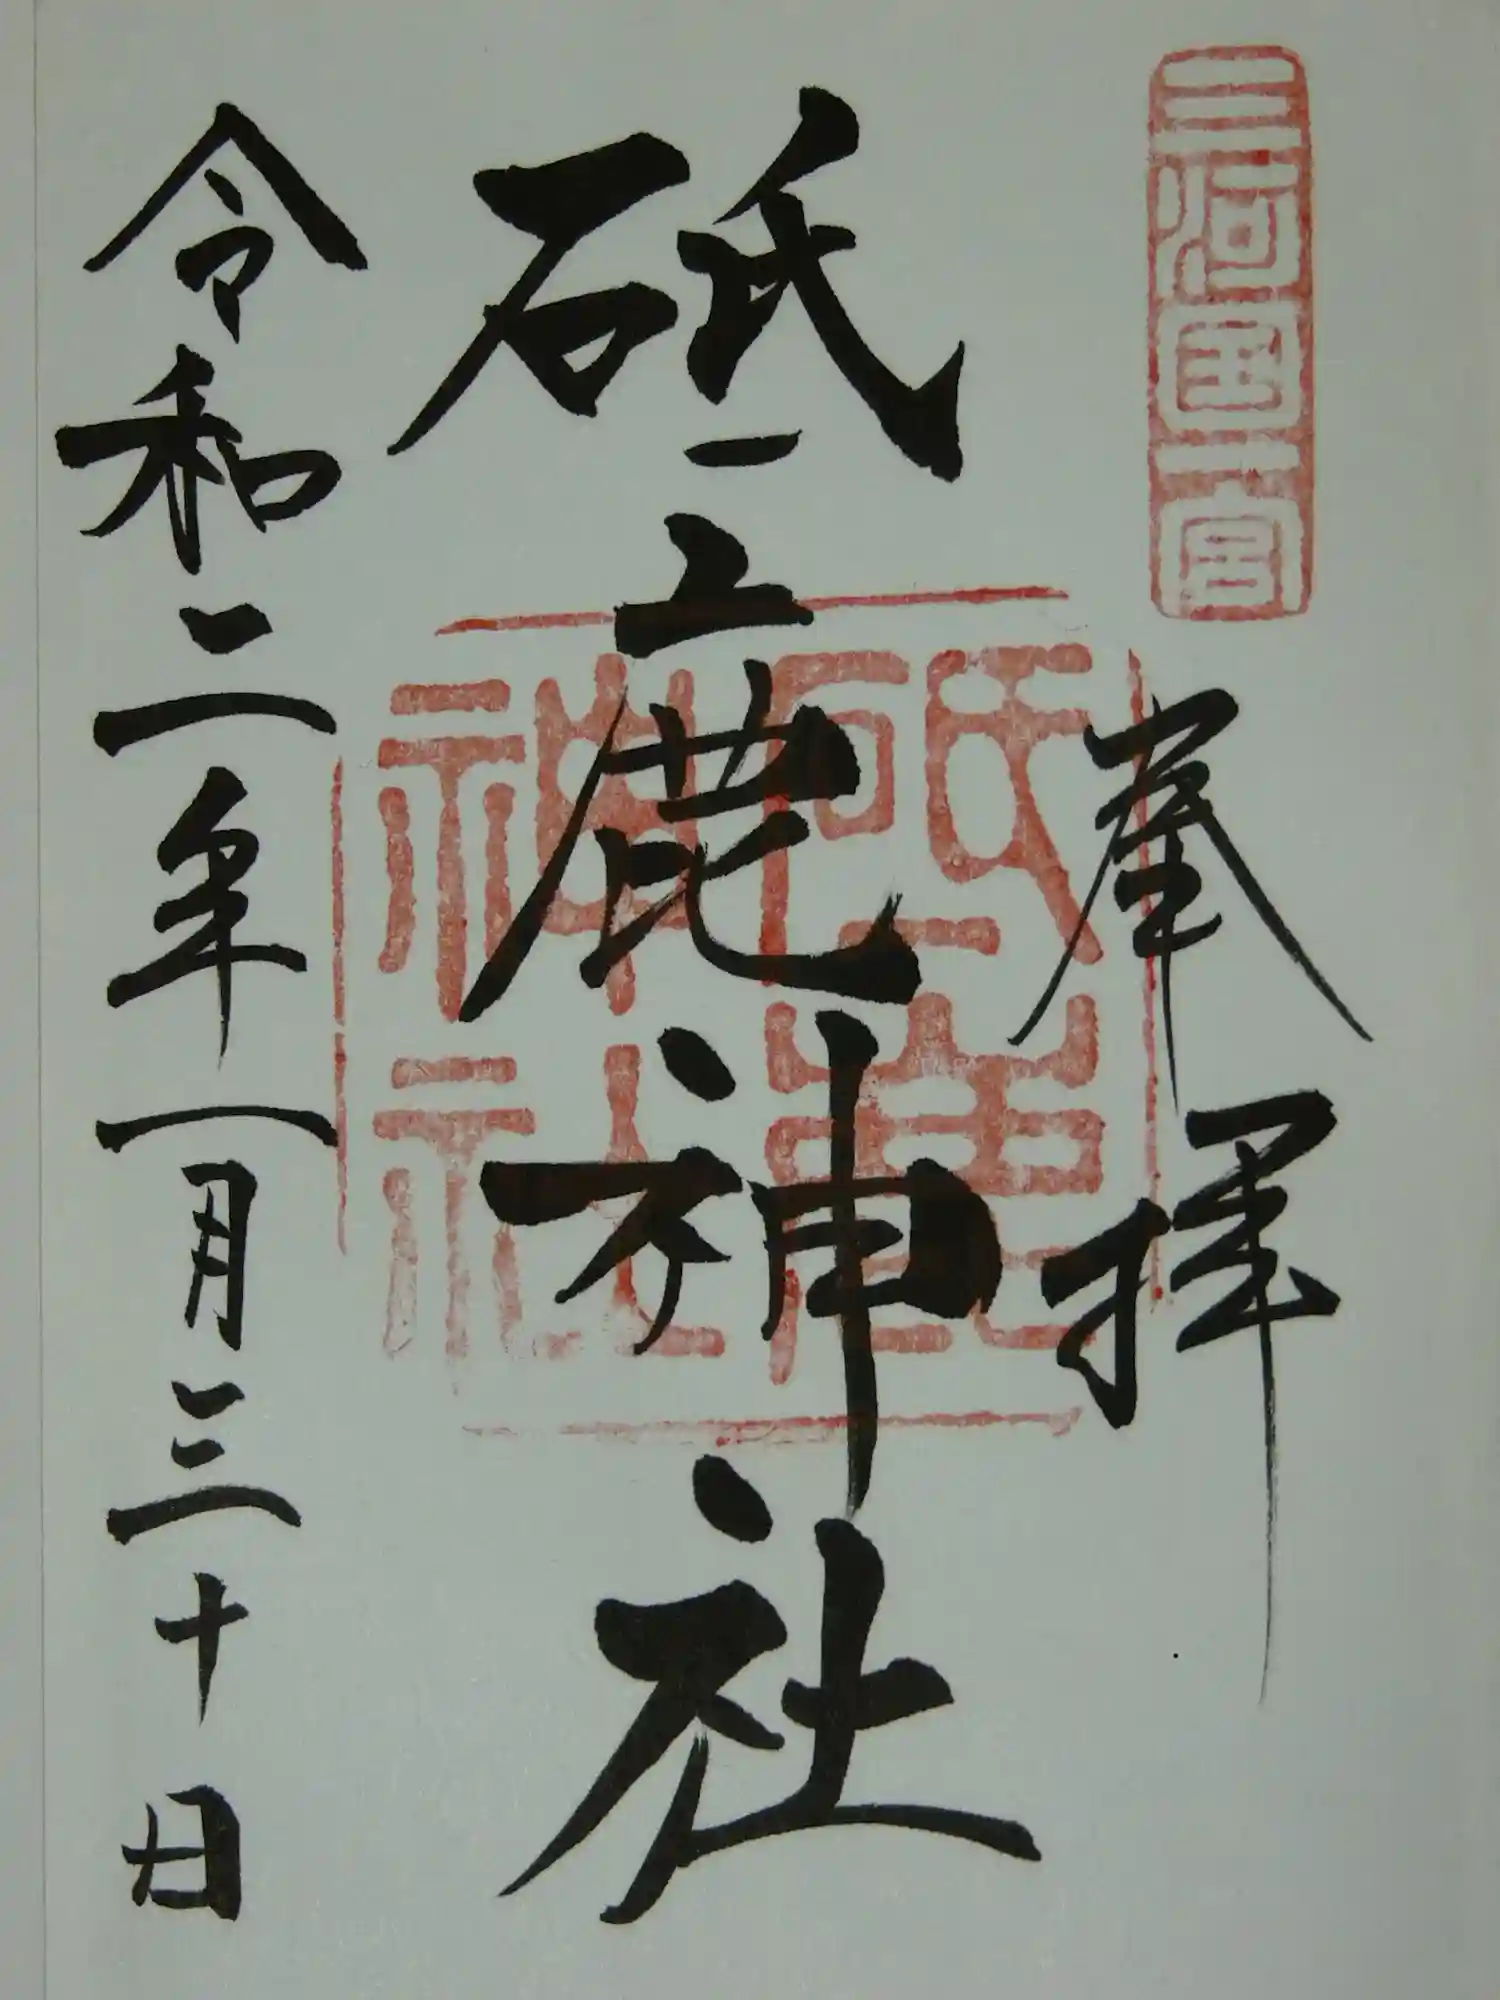 三河国一宮
奉拝
砥鹿神社
砥鹿
神社
令和二年一月三十日